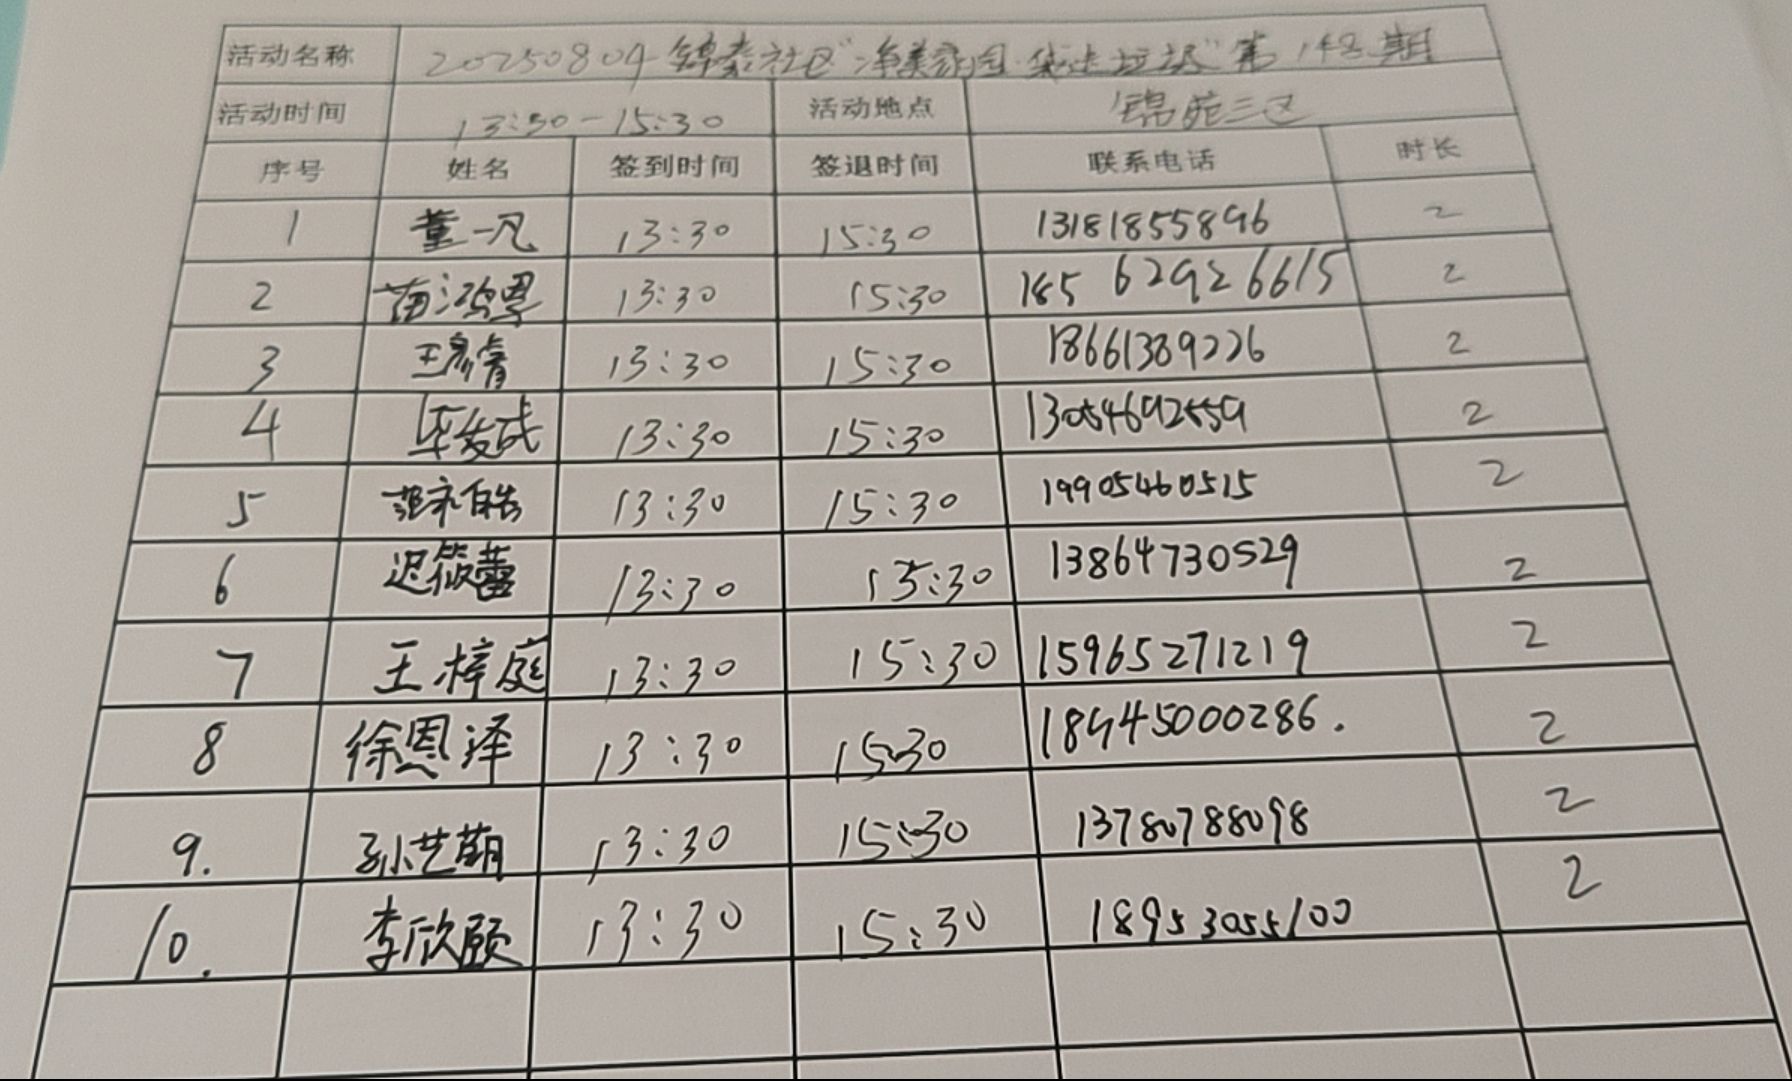 活动名称 20250804锦泰社区"净美家园·袋走垃圾"第148期
活动时间 13:30-15:30 活动地点 锦苑三区
序号 姓名 签到时间 签退时间 联系电话 时长
1 董一凡 13:30 15:30 13181855896 2
2 苗鸿恩 13:30 15:30 185 62926615 2
3 王彦睛 13:30 15:30 18661389226 2
4 毕发成 13:30 15:30 13054692559 2
5 范禾皓 13:30 15:30 19905460515 2
6 迟筱蕾 13:30 15:30 13864730529 2
7 王梓庭 13:30 15:30 15965271219 2
8 徐恩泽 13:30 15:30 18445000286. 2
9. 孙艺萌 13:30 15:30 13780788098 2
10. 李欣颐 13:30 15:30 18953055100 2